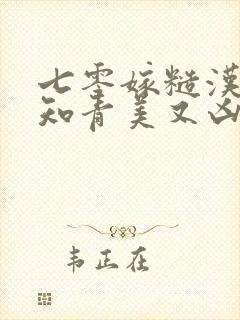 七零嫁糙漢
知青美又凶
韦正在